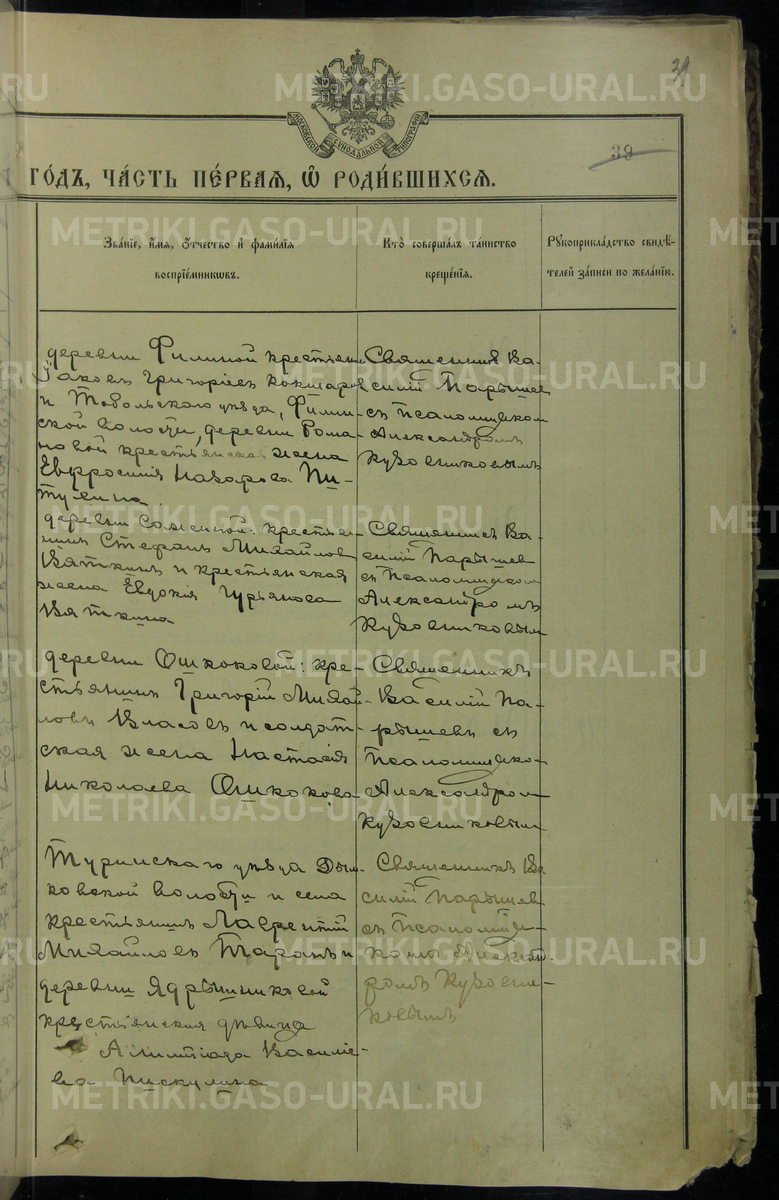 39
МОСКОВСКОЙ СѴНОДАЛЬНОЙ ТИПОГРАФІИ
39
ГО́ДЪ, ЧА́СТЬ ПЕ́РВАЯ, Ѡ҆ РОДИ́ВШИХСЯ.
Зва́нїе, и҆́мя, ѻ҆́тчество и҆ фами́лїя
воспрїе́мникѡвъ.
Кто̀ соверша́лъ та́инство
креще́нїя.
Рꙋкоприкла́дство свидѣ́-
телей за́писи по жела́нїю.
деревни Филиной крестьянин
Іаковъ Григоріевъ Кокшаров
и Тобольскаго уѣзда, Филин-
ской волости, деревни Рома-
новой крестьянская жена
Евфросинія Назарова Пи-
тулина
Священникъ Ва-
силій Парышев
съ псаломщиком
Александромъ
Кузовниковымъ
деревни крестья-
нинъ Стефанъ Михайлов
Вяткинъ и крестьянская
жена Евдокія Гурьянова
Вяткина
Священникъ Ва-
силій Парышев
съ псаломщиком
Александромъ
Кузовниковым
деревни Ошкоковой: кре-
стьянинъ Григорій Михай-
ловъ Власовъ и солдат-
ская жена Настасія
Николаева Ошкокова
Священникъ
Василій Па-
рышевъ съ
псаломщико-
Александром
Кузовниковым
Туринскаго уѣзда
ковской волости и села
крестьянинъ Лаврентій
Михайловъ Таранъ и
деревни Ядрышниковой
крестьянская дѣвица
Василіе-
ва Пискулина
Священникъ Ва
силій Парышев
съ псаломщи-
комъ Александ-
ромъ Кузовни-
ковымъ
METRIKI.GASO-URAL.RU